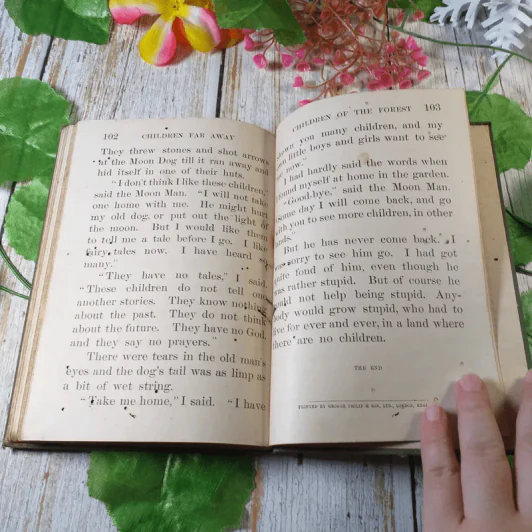 102 CHILDREN FAR AWAY
They threw stones and shot arrows
at the Moon Dog till it ran away and
hid itself in one of their huts.
"I don't think I like these children,"
said the Moon Man. "I will not take
one home with me. He might hurt
my old dog, or put out the light of
the moon. But I would like them
to tell me a tale before I go. I like
fairy tales now. I have heard so
many."
"They have no tales," I said.
"These children do not tell one
another stories. They know nothing
about the past. They do not think
about the future. They have no God,
and they say no prayers."
There were tears in the old man's
eyes and the dog's tail was as limp as
a bit of wet string.
"Take me home," I said. "I have
CHILDREN OF THE FOREST 103
you many children, and my
little boys and girls want to see
now."
had hardly said the words when
found myself at home in the garden.
"Good-bye," said the Moon Man.
some day I will come back, and go
with you to see more children, in other
But he has never come back. I
was sorry to see him go. I had got
quite fond of him, even though he
was rather stupid. But of course he
could not help being stupid. Any-
body would grow stupid, who had to
live for ever and ever, in a land where
there are no children.
THE END
PRINTED BY GEORGE PHILIP & SON, LTD., LONDON,